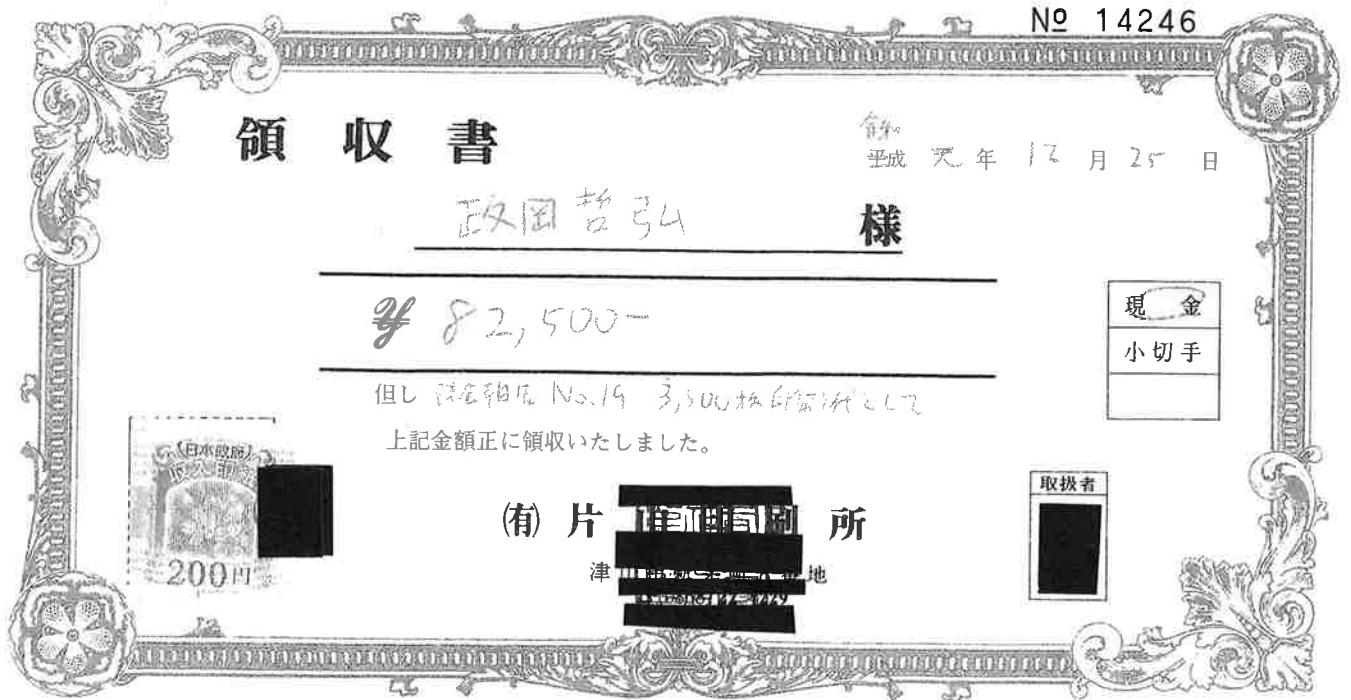 № 14246
領収書
令和
平成 元年 12月 25日
政岡哲弘 様
¥ 82,500-
現金
小切手
但し No.19 3,500枚印刷代として
上記金額正に領収いたしました。
日本政府
収入印紙
200円
取扱者
(有) 片 所
津 地